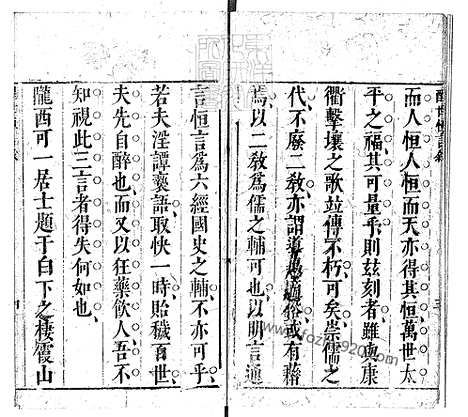 醒世恆言敘
而人恒人恒而天亦得其恒萬世太
平之福其可量乎則茲刻者雖與康
衢擊壤之歌竝傳不朽可矣崇儒之
代不廢二教亦謂導愚適俗或有藉
焉以二教為儒之輔可也以明言通
三
言恒言為六經國史之輔不亦可乎
若夫淫譚褻語取快一時貽穢百世
夫先自醉也而又以狂藥飲人吾不
知視此三言者得失何如也
隴西可一居士題于白下之棲霞山
四